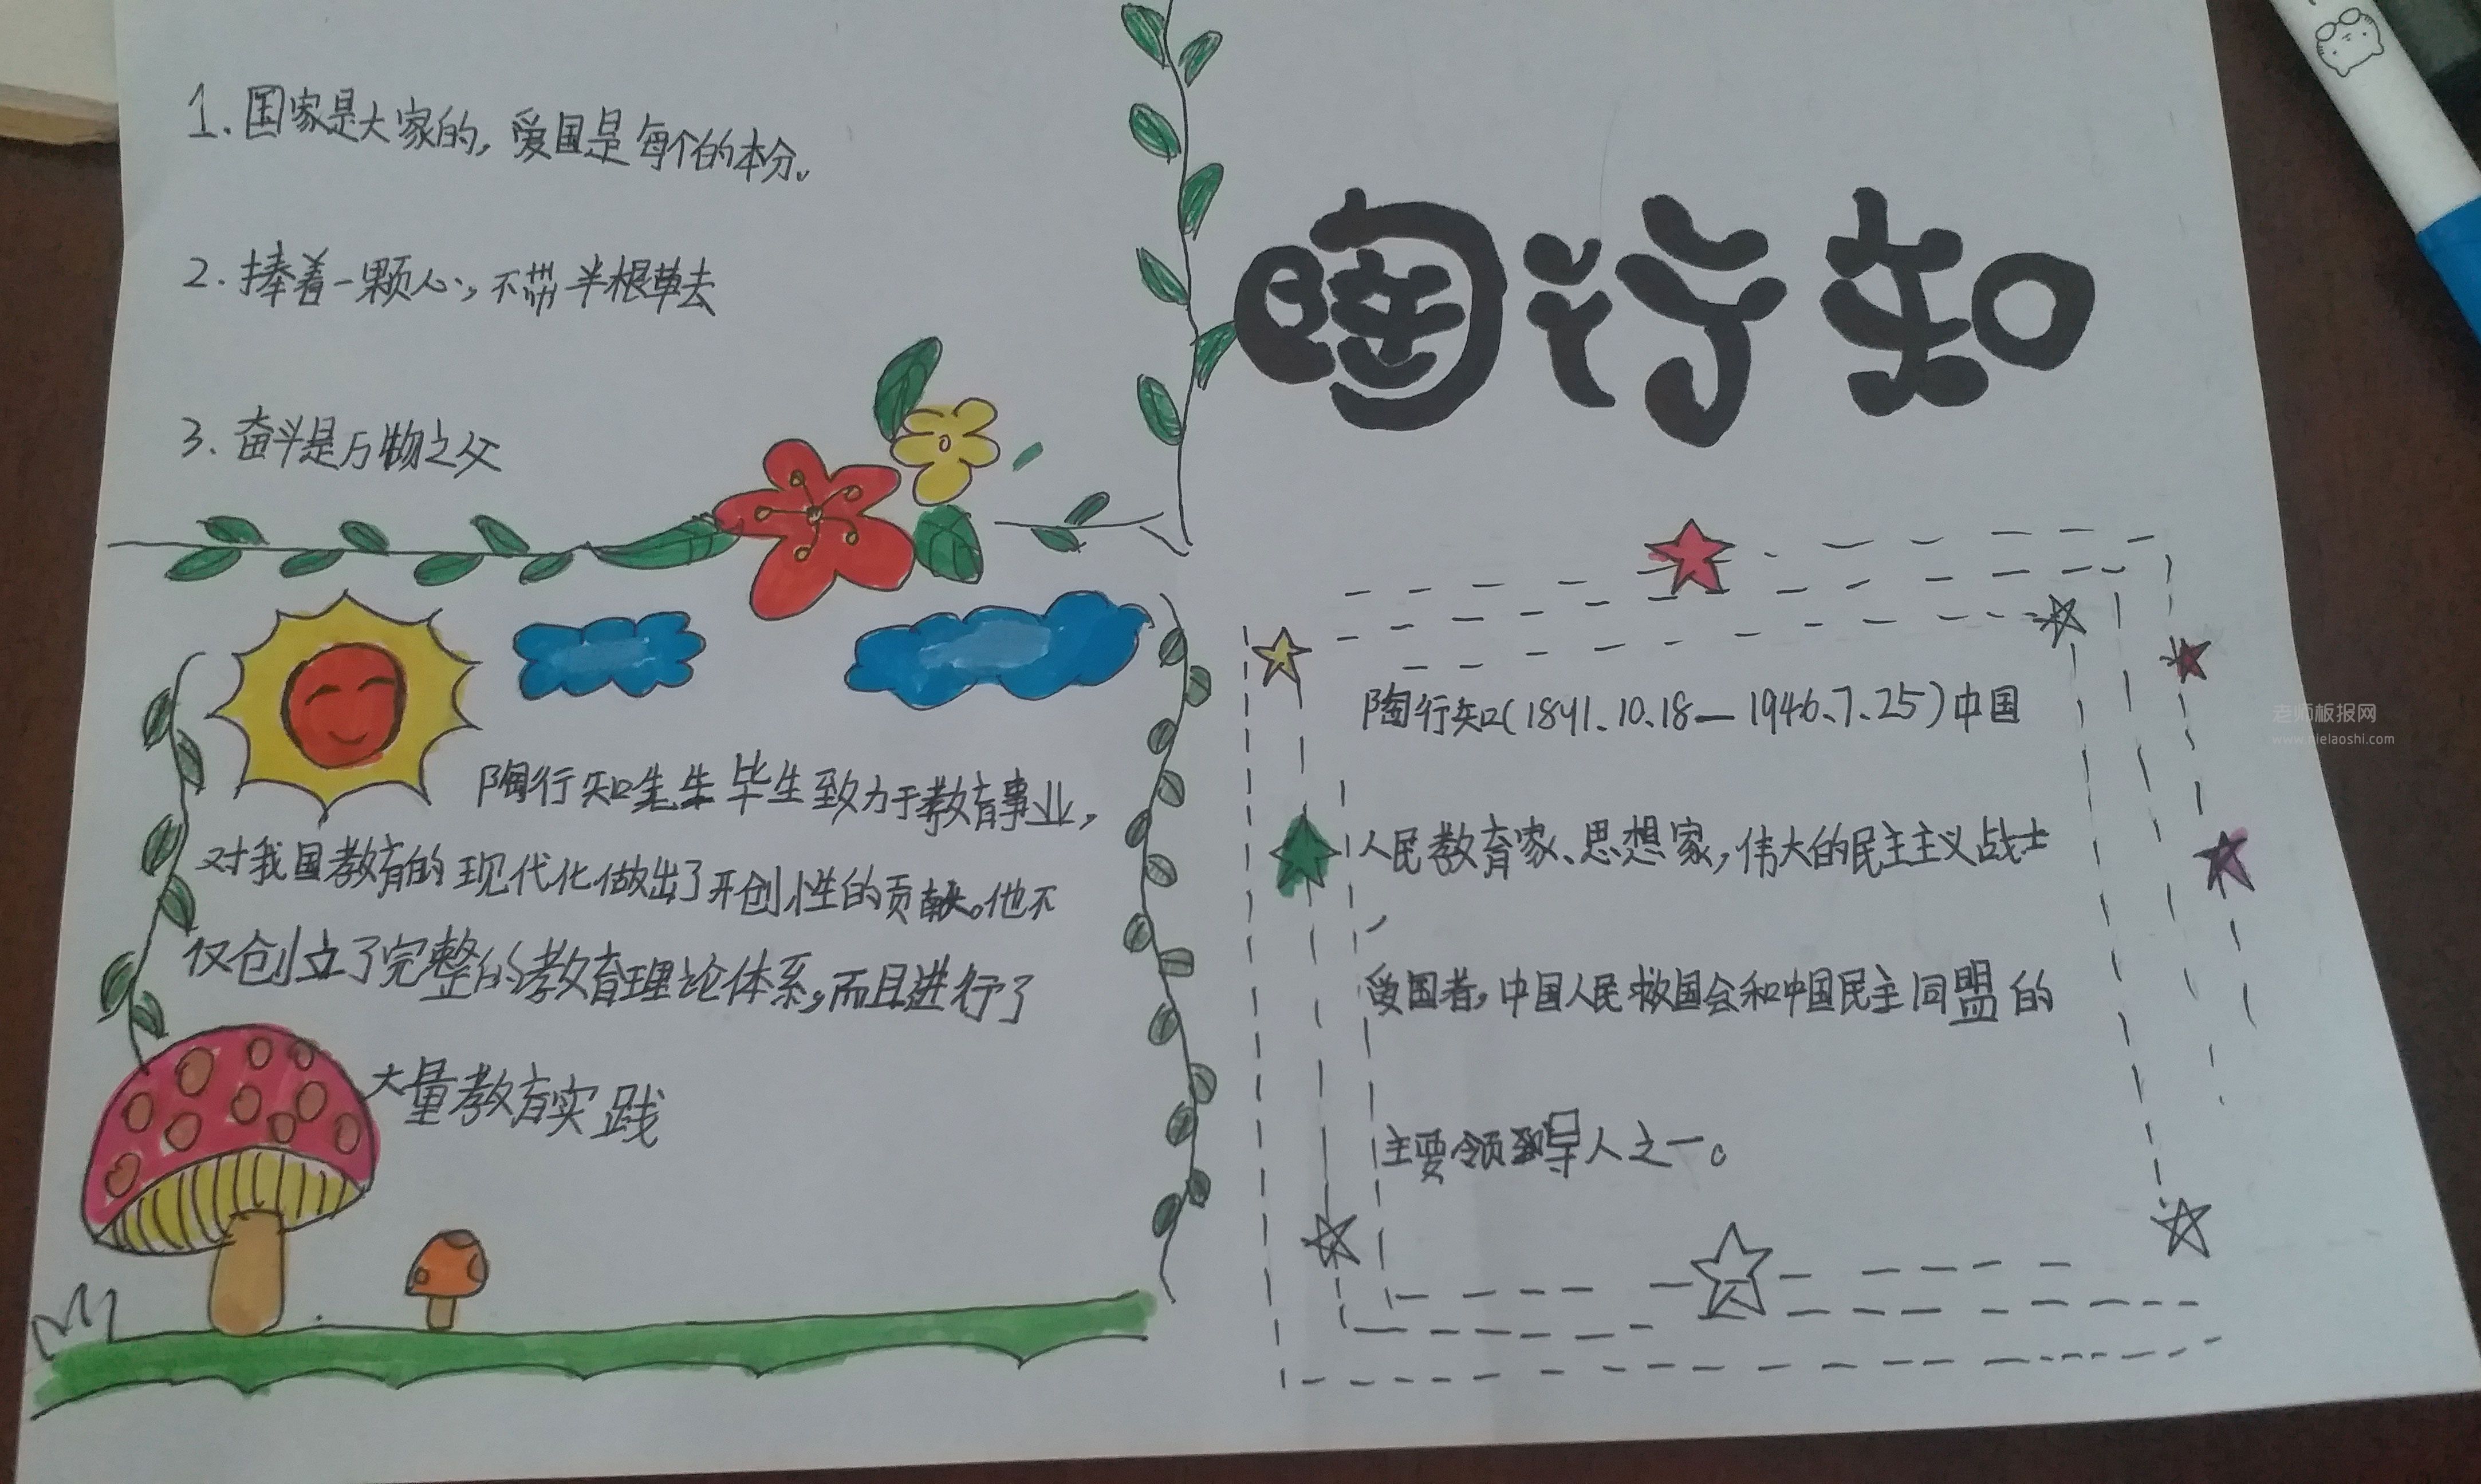 1.国家是大家的,爱国是每个的本分。
2.捧着一颗心,不带半根草去
3.奋斗是万物之父
陶行知
陶行知先生毕生致力于教育事业,
对我国教育的现代化做出了开创性的贡献。他不
仅创立了完整的教育理论体系,而且进行了
大量教育实践
陶行知(1891.10.18—1946.7.25)中国
人民教育家、思想家,伟大的民主主义战士
爱国者,中国人民救国会和中国民主同盟的
主要领导人之一。
老师板报网